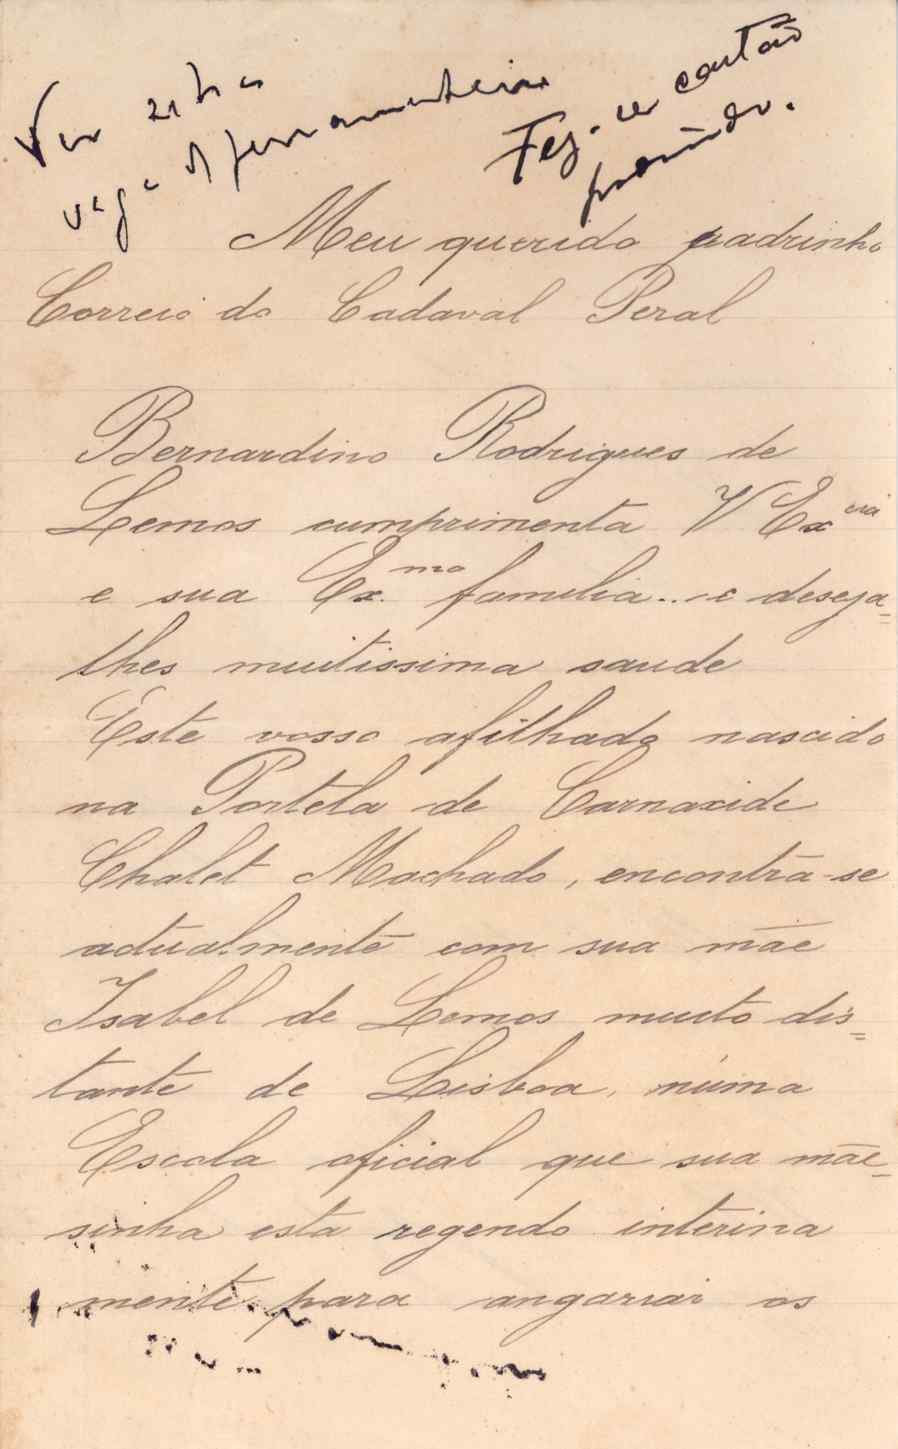 Fez-se cartão
Meu querido padrinho
Correio do Cadaval Peral
Bernardino Rodrigues de
Lemos cumprimenta V Ex.cia
e sua Ex.ma familia.. e deseja=
lhes muitissima saude
Este vosso afilhado nascido
na Portela de Carnaxide
Chalet Machado, encontra-se
actualmente com sua mãe
Isabel de Lemos muito dis=
tante de Lisboa, núma
Escola oficial que sua mãe=
sinha esta regendo interina
mente para angariar os